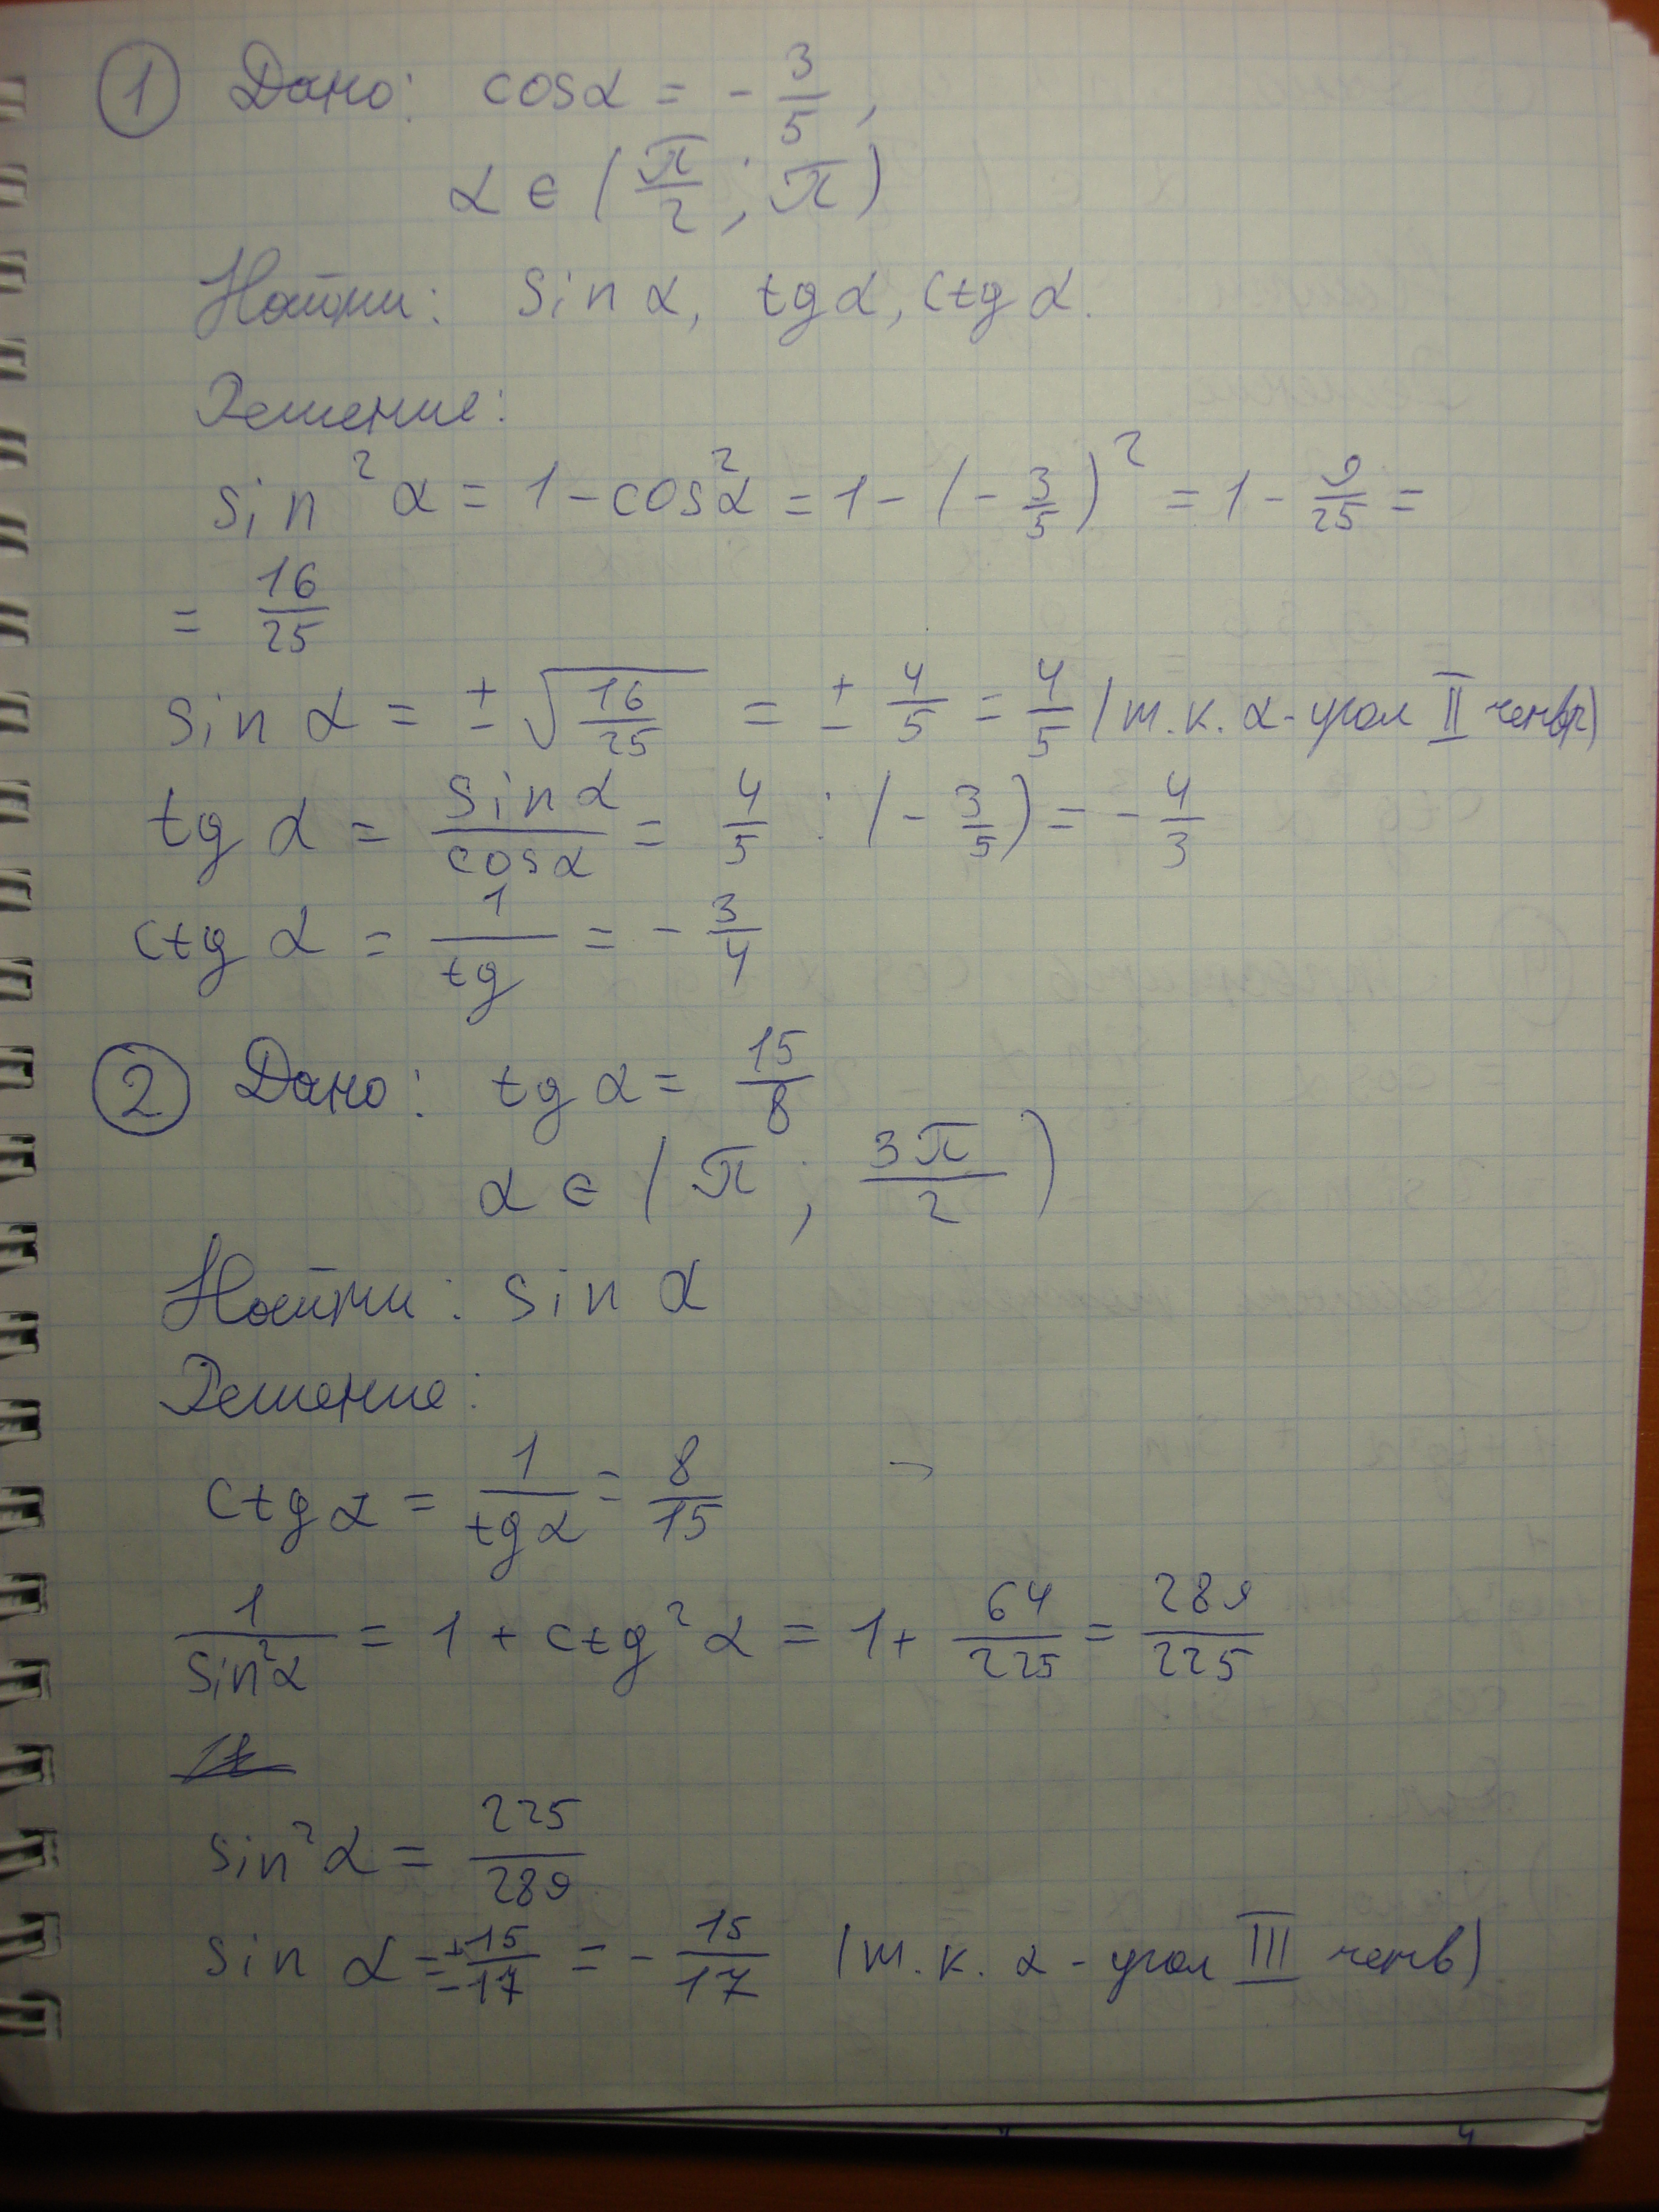 ① Дано: cosα = - 3/5,
α ∈ (π/2; π)
Найти: sin α, tg α, ctg α.
Решение:
sin² α = 1 - cos²α = 1 - (- 3/5)² = 1 - 9/25 =
= 16/25
sin α = ± √(16/25) = ± 4/5 = 4/5 (т.к. α - угол II четв)
tg α = sin α/cos α = 4/5 : (- 3/5) = - 4/3
ctg α = 1/tg = - 3/4
② Дано: tg α = 15/8
α ∈ (π; 3π/2)
Найти: sin α
Решение:
ctg α = 1/tg α = 8/15
1/sin²α = 1 + ctg² α = 1 + 64/225 = 289/225
sin² α = 225/289
sin α = ± 15/17 = - 15/17 (т.к. α - угол III четв)